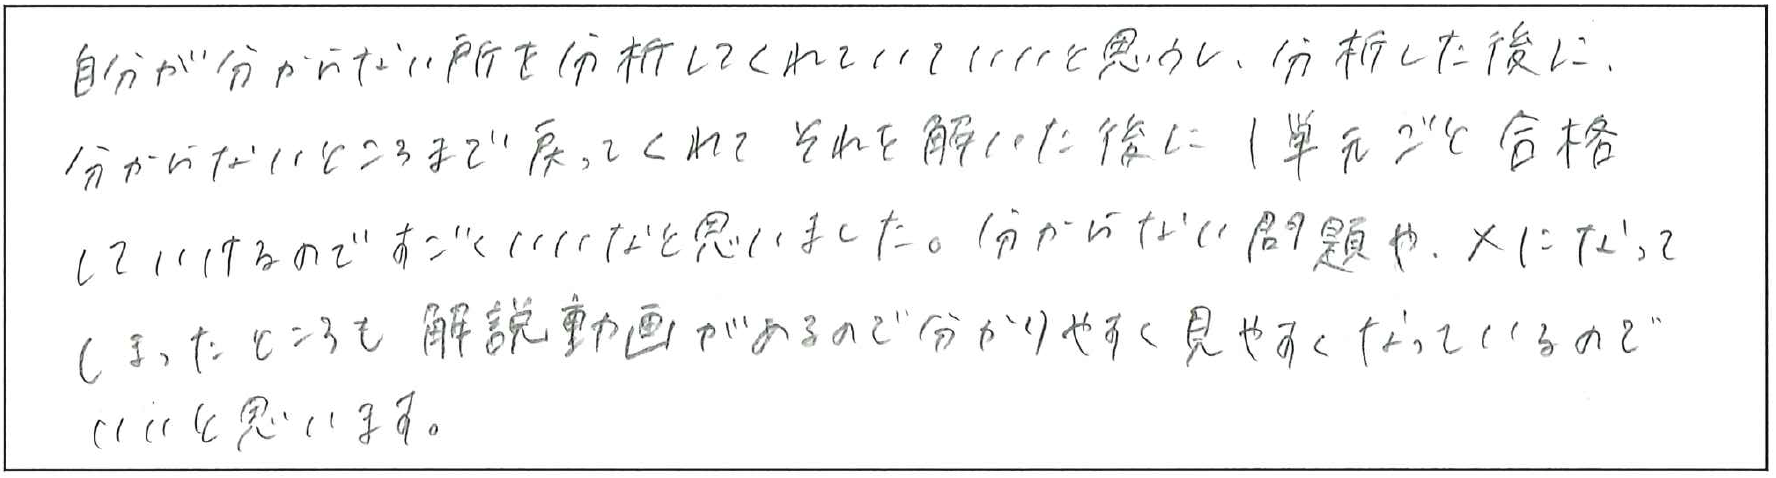 自分が分からない所を分析してくれていていいと思うし、分析した後に、
分からないところまで戻ってくれて それを解いた後に 1単元ごと 合格
していけるのですごくいいなと思いました。分からない問題や、×になって
しまったところも 解説動画があるので分かりやすく見やすくなっているので
いいと思います。